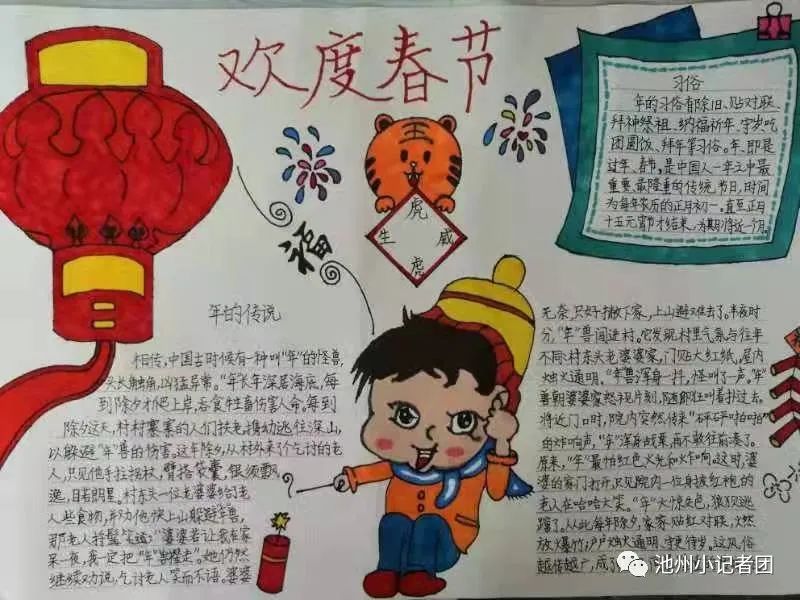 欢度春节
习俗
年的习俗有除旧、贴对联、
拜神祭祖、纳福祈年、守岁吃
团圆饭、拜年等习俗。年、即是
过年、春节,是中国人一年之中最
重要最隆重的传统节日,时间
为每年农历的正月初一。直至正月
十五元宵节才结束,为期将近一个月。
虎
生 威
虎
福
年的传说
相传,中国古时候有一种叫“年”的怪兽,
头长触角,凶猛异常。“年”长年深居海底,每
到除夕才爬上岸,吞食牲畜伤害人命。每到
除夕这天,村村寨寨的人们扶老携幼逃往深山,
以躲避“年”兽的伤害。这年除夕,从村外来了个乞讨的老
人,只见他手拉拐杖,臂搭袋囊,银须飘
逸,目若朗星。村东头一位老婆婆给了老
人些食物,并劝他快上山躲避年兽,
那老人捋髯笑道:“婆婆若让我在家
呆一夜,我一定把“年”兽撵走。”她仍然
继续劝说,乞讨老人笑而不语。婆婆
无奈,只好撇下家,上山避难去了。半夜时
分,“年”兽闯进村。它发现村里气氛与往年
不同:村东头老婆婆家,门贴大红纸,屋内
烛火通明。“年”兽浑身一抖,怪叫了一声。“年”
兽朝婆婆家怒视片刻,随即狂叫着扑过去。
将近门口时,院内突然传来“砰砰啪啪”
的炸响声,“年”浑身战栗,再不敢往前凑了。
原来,“年”最怕红色、火光和炸响。这时,婆
婆的家门打开,只见院内一位身披红袍的
老人在哈哈大笑。“年”大惊失色,狼狈逃
蹿了。从此每年除夕,家家贴红对联、燃
放爆竹;户户烛火通明、守更待岁。这风俗
越传越广,成了
池州小记者团